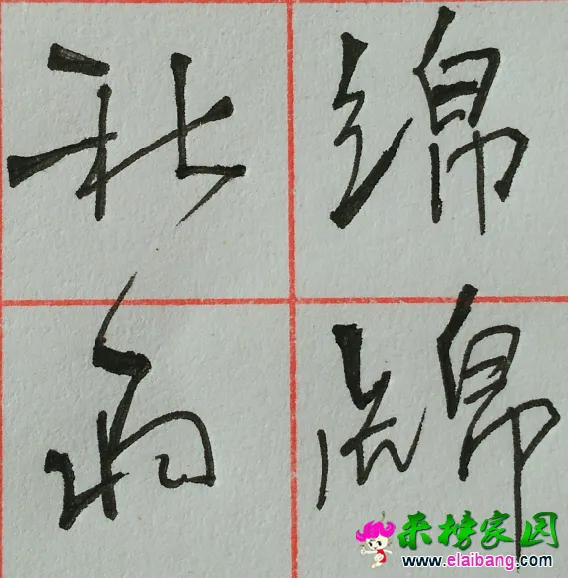 绵綿
秋雨
来榜家园
www.elaibang.com